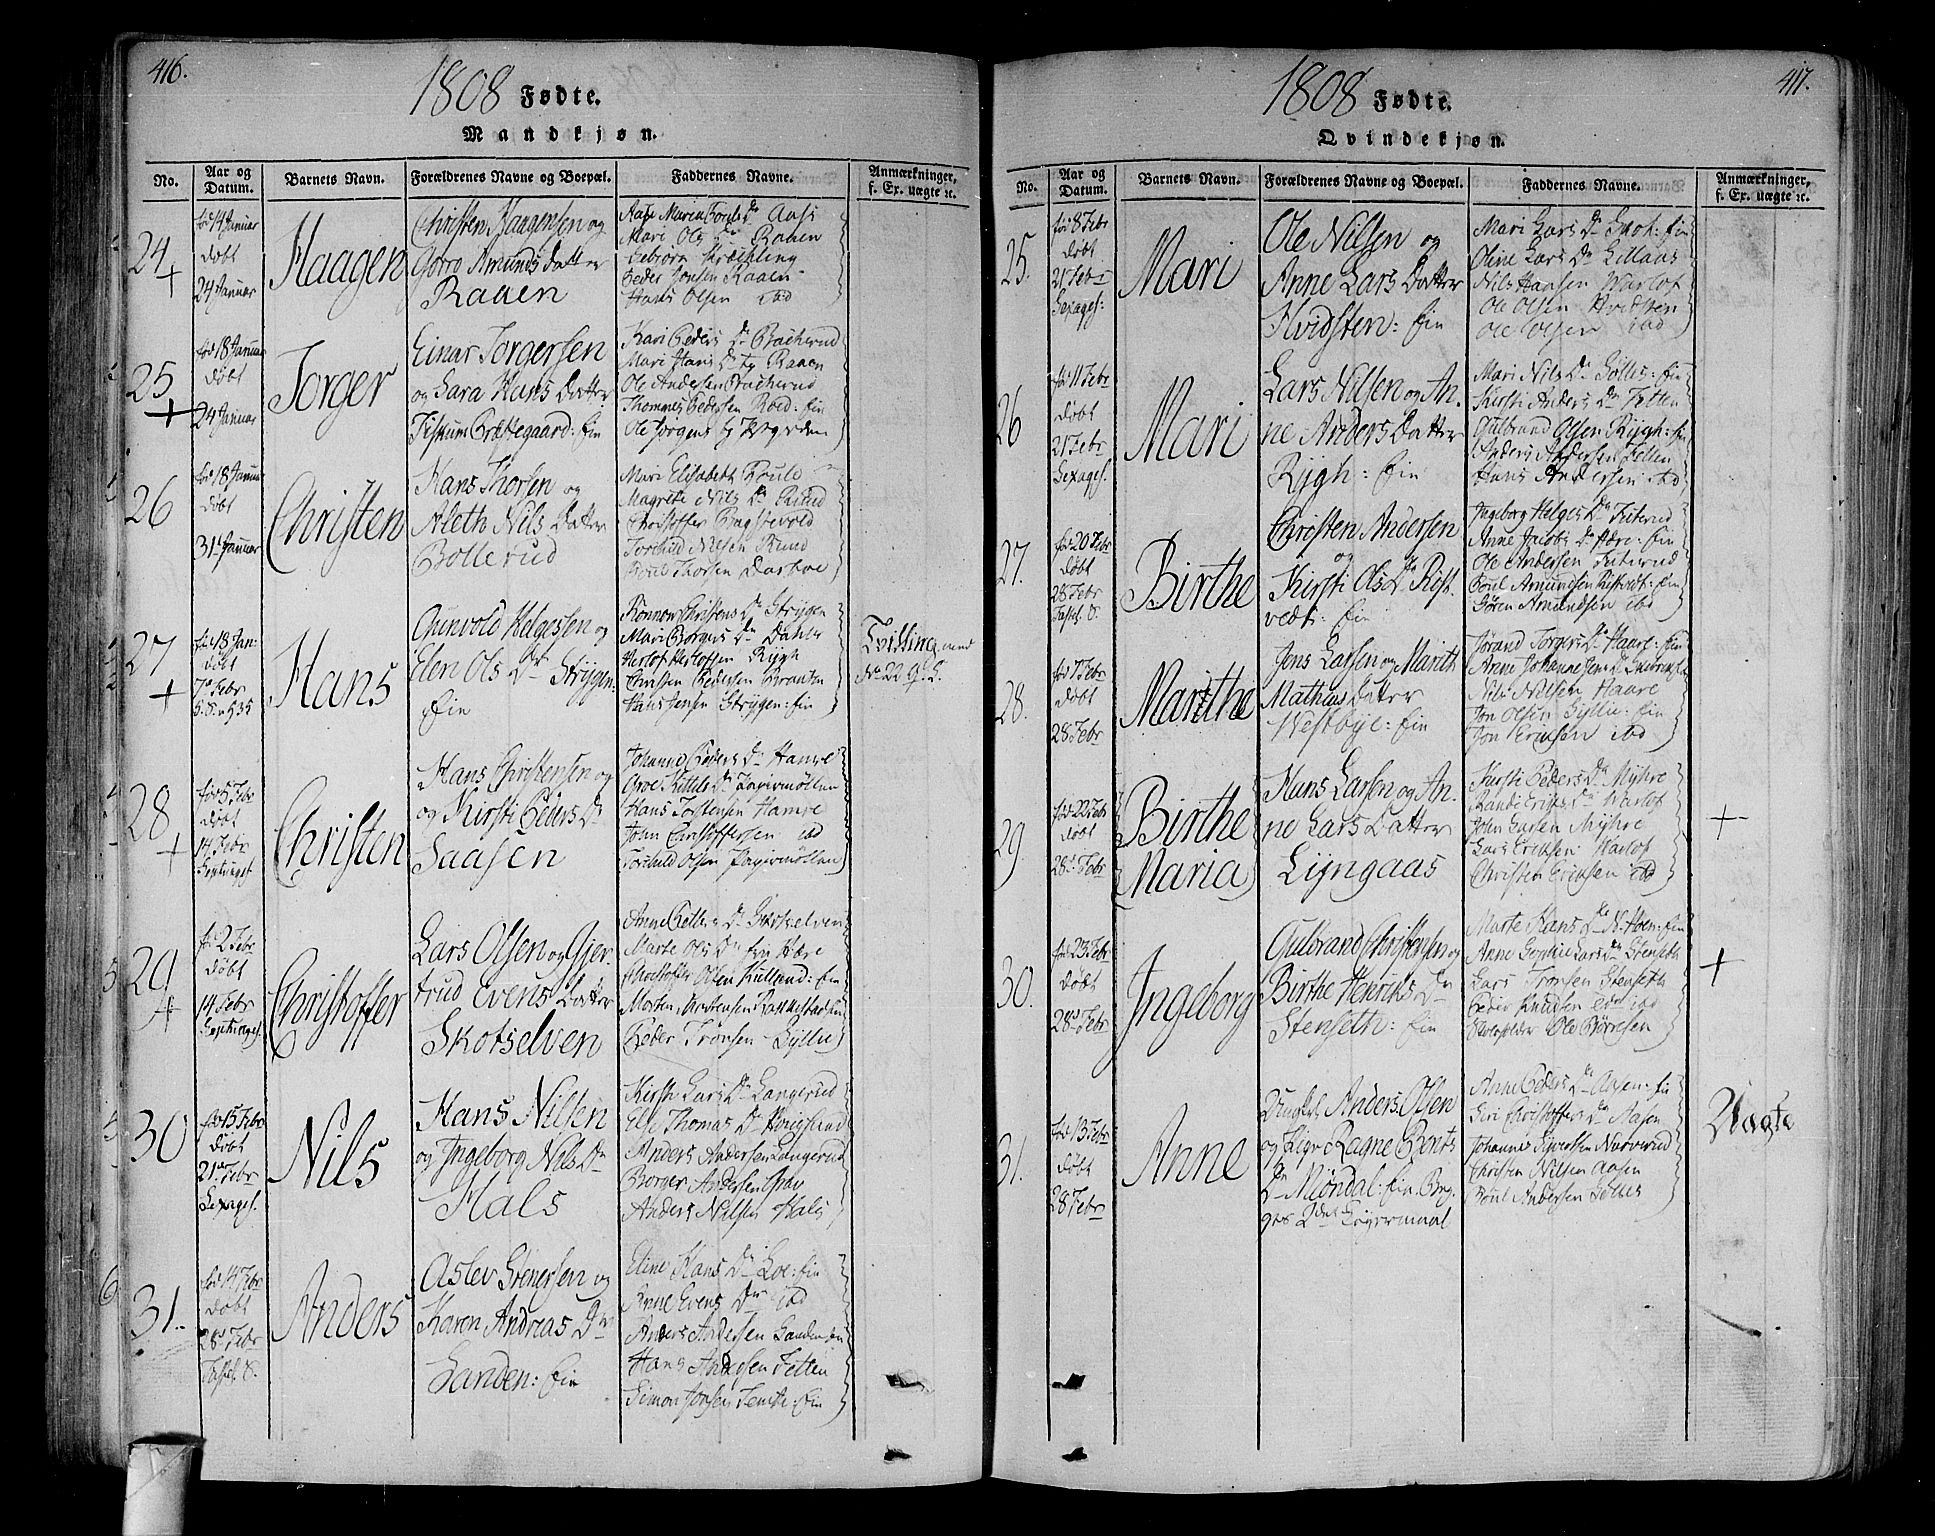 416.
1808 Fødte.
Mandkjøn.
No.
Aar og Datum.
Barnets Navn.
Forældrenes Navne og Boepæl.
Faddernes Navne.
Anmærkninger, f. Ex. uægte ec.
24
+
fød 14 Januar
døbt
24 Januar
Haagen
Christen Haagensen og
Amunds Datter
Raaen
Mari Ols Dr Raaen
Peder Jonsen Raaen
Hans Olsen ibd
25
+
fød 18 Januar
døbt
24 Januar
Jorger
Einar Jorgersen
og Sara Hans Datter
Fiskum Præstegaard: Ein
Kari Peders Dr Bacherud
Mari Hans Dr Raaen
Ole Andersen Bacherud
Thommes Pedersen Roed: Ein
26
fød 18 Januar
døbt
31 Januar
Christen
Hans Thorsen og
Aleth Nils Datter
Bollerud
Mari Elisabeth Bould
Magrete Nils Dr Rund
Christoffer
Nilsen Rund
Poul Thorsen
27
+
fød 18 Jan:
døbt
7de Febr
Hans
Gunvold Helgessen og
Elen Ols Dr Strygen:
Ein
Ronnow Christens Dr Strygen
Mari Borgers Dr Dahler
Herlof Herlofsen Rygh
Christen Pedersen
Hans Jensen Strygen: Ein
Tvilling med
No 22 Q. S.
28
+
fød 5 Febr
døbt
14 Febr
Septuages.
Christen
Hans Christensen og
og Kirsti Peders Dr
Saasen
Johanne Peders Dr Hamre
Kittils Dr Papirmøllen
Hans Tostensen Hamre
John Christoffersen ibd
Torchild Olsen Papirmøllen
29
+
fød 2 Febr
døbt
14 Febr
Septuages.
Christoffer
Lars Olsen og Gjer-
trud Evens Datter
Skotselven
Anne Dr Skotselven
Marte Ols Dr
Christoffer Olsen
Morten Mortensen
Peder Tronsen Gyllie
30
fød 15 Febr
døbt
21de Febr
Sexages.
Nils
Hans Nilsen
og Ingeborg Nils Dr
Hals
Kirsti Lars Dr Langerud
Else Thomas Dr
Anders Andersen Langerud
Borger Andersen
Anders Nilsen Hals
31.
fød 14 Febr
døbt
28de Febr
Fastel. S.
Anders
Aslev Stenersen og
Karen Andreas Dr
Sanden: Ein
Eline Hans Dr Loe: Ein
Anne Evens Dr ibd
Anders Andersen Sanden
Hans Andersen Tetten
Simon Jonsen
417.
1808 Fødte.
Qvindekjøn.
No.
Aar og Datum.
Barnets Navn.
Forældrenes Navne og Boepæl.
Faddernes Navne.
Anmærkninger, f. Ex. uægte ec.
25.
fød 8 Febr
døbt
21 Febr
Sexages:
Mari
Ole Nilsen og
Anne Lars Datter
Hvidsten: Ein
Mari Lars Dr
Oline Lars Dr Gillaas
Nils Hansen Warlof
Ole Olsen Hvidsten
Ole Olsen ibd
26
fød 11 Febr
døbt
21 Febr
Sexages.
Mari
Lars Nilsen og An-
ne Anders Datter
Rygh: Ein
Mari Nils Dr
Kirsti Anders Dr Tetten
Gulbrand Olsen Rygh: Ein
Anders Andersen Tetten
Hans Andersen ibd
27.
fød 20 Febr
døbt
28 Febr
Fastel. S.
Birthe
Christen Andersen
og
Kirsti Ols Dr Rist-
vedt: Ein
Ingeborg Helges Dr
Anne Jacobs Dr
Ole Andersen
Poul Amundsen Ristvedt: Ein
Søren Amundsen ibd
28.
fød 7 Febr
døbt
28 Febr
Marithe
Jens Larsen og Marith
Mathias Datter
Westbye: Ein
Jørand Torgers Dr Haare: Ein
Anne Johannesens Dr
Nils Nilsen Haare
Jon Olsen Gyllie: Ein
Jon Ericksen ibd
29.
fød 22 Febr
døbt
28de Febr
Birthe
Maria
Hans Larsen og An-
ne Lars Datter
Lyngaas
Kirsti Peders Dr Myhre
Rande Erichs Dr Warlof
John Larsen Myhre
Lars Ericksen Warlof
Christen Ericksen ibd
+
30.
fød 23 Febr
døbt
28de Febr
Ingeborg
Gulbrand Christensen og
Birthe Henrichs Dr
Stenseth: Ein
Marte Hans Dr N. Hoen: Ein
Anne Sophie Lars Dr Stenseth
Lars Tronsen Stenseth
Peder Knudsen ibd
Ole Børresen
+
31.
fød 13 Febr
døbt
28 Febr
Anne
Ungkl. Anders Olsen
og Pige Ragne Bents
Dr Miøndal: Ein. Beg-
ges 2det Leyermaal
Anne Peders Dr Aasen: Ein
Siri Christoffers Dr Aasen
Johannes Sivertsen Narverud
Christen Nilsen Aasen
Poul Andersen
Uægte